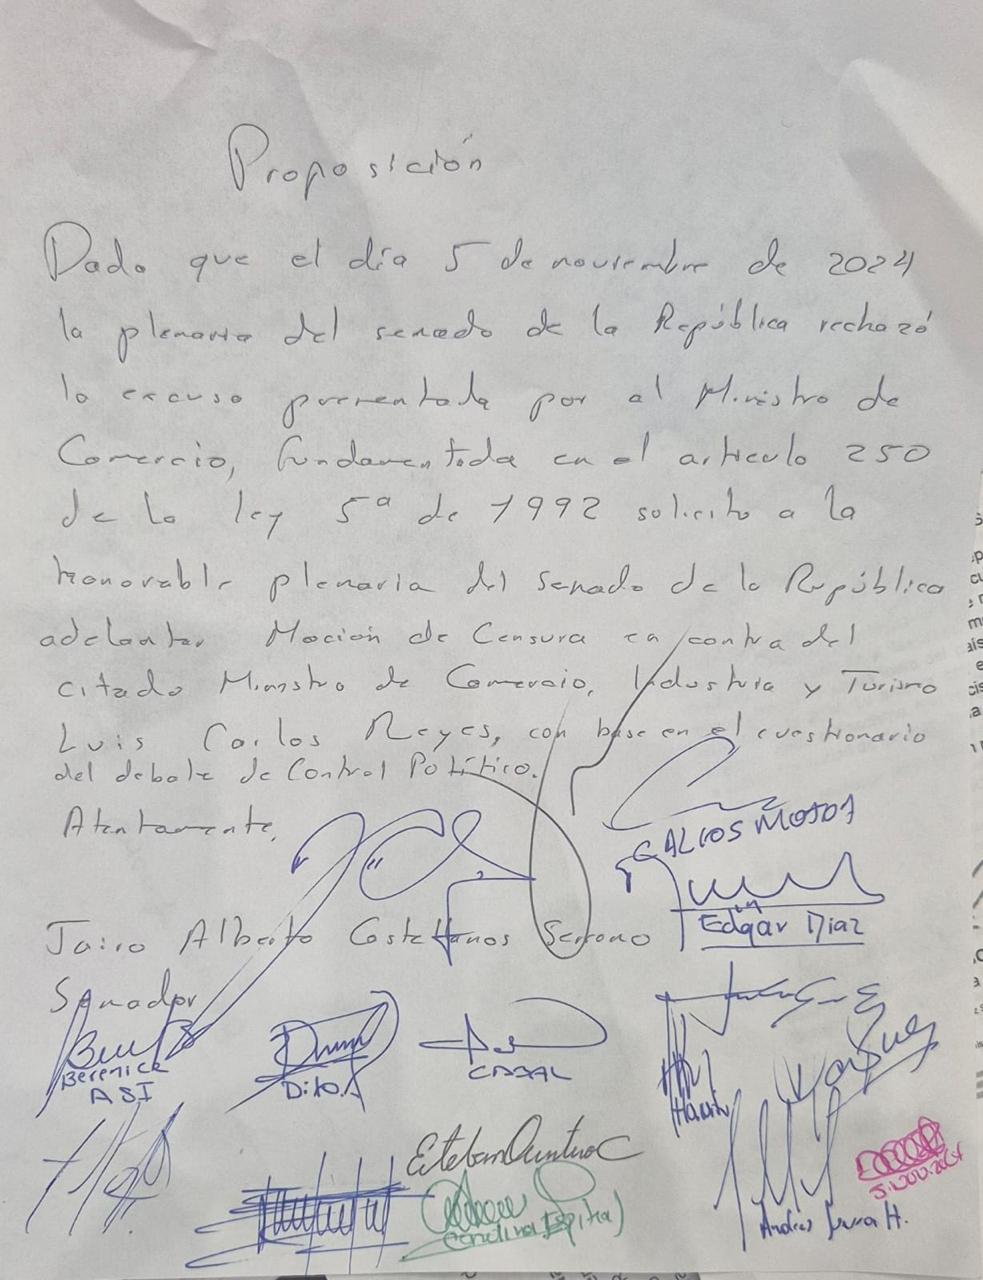 Proposición
Dado que el día 5 de noviembre de 2024
la plenaria del senado de la República rechazó
la excusa presentada por el Ministro de
Comercio, fundamentada en el artículo 250
de la ley 5ª de 1992 solicito a la
honorable plenaria del senado de la República
adelantar Moción de Censura en contra del
citado Ministro de Comercio, Industria y Turismo
Luis Carlos Reyes, con base en el cuestionario
del debate de Control Político.
Atentamente,
CARLOS MOTOA
Edgar Diaz
Jairo Alberto Castellanos Serrano
Senador
Berenice
ASI
CABAL
Esteban Quintero C
(Carolina Espitia)
5.NOV.2024
Andrés Guerra H.